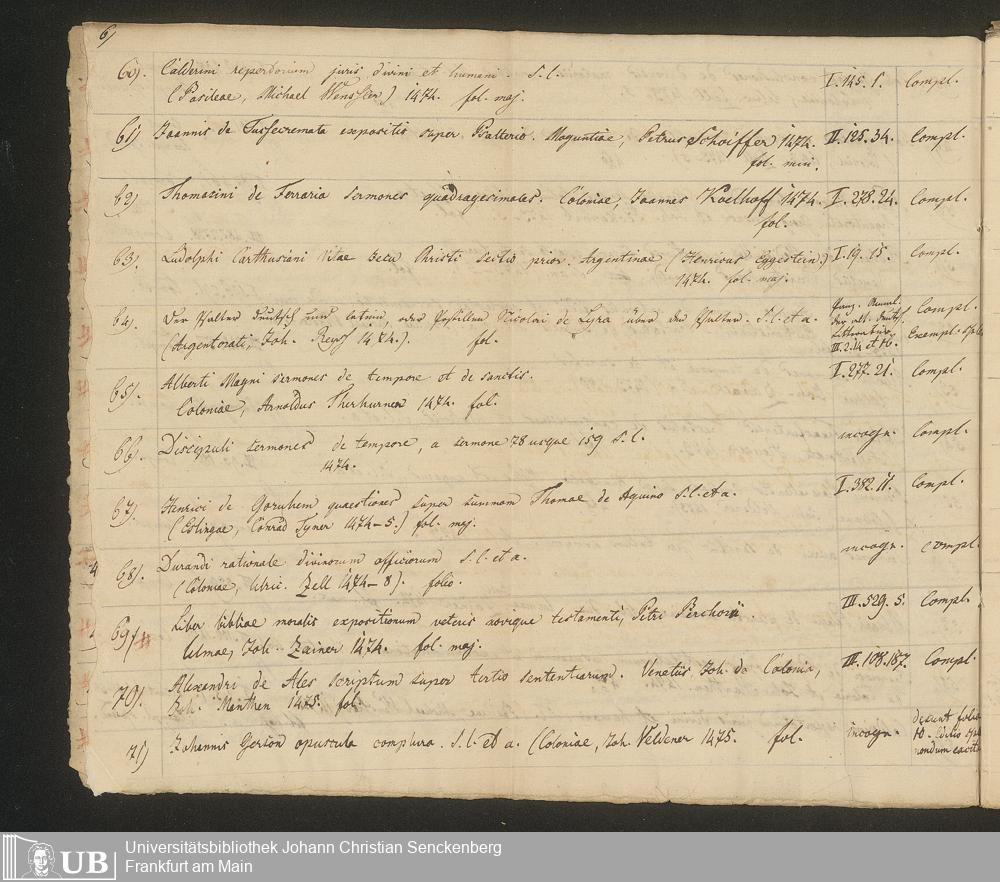 6)
60). Calderini repertorium juris divini et humani. S. l. I. 145. 1. Compl.
(Basileae, Michael Wenssler) 1474. fol. maj.
61) Joannis de Turrecremata expositio super Psalterio. Moguntiae, Petrus Schoiffer 1474. II. 125. 34. Compl.
fol. min.
62) Thomasini de Ferraria sermones quadragesimales. Coloniae, Joannes Koelhoff 1474. I. 278. 24. Compl.
fol.
63). Ludolphi Carthusiani Vitae Jesu Christi sectio prior. Argentinae (Henricus Eggestein.) I. 19. 15. Compl.
1474. fol. maj.
64). Der Psalter deutsch und latein, oder Postillen Nicolai de Lyra über den Psalter. S. l. et a. Panz. Annal. der alt. deutsch. Litteratur. III. 2. 14 et 16. Compl.
(Argentorati, Joh. Reyss 1474.). fol. Exempl.
65). Alberti Magni sermones de tempore et de sanctis. I. 277. 21. Compl.
Coloniae, Arnoldus Therhurnen 1474. fol.
66). Discipuli sermones de tempore, a sermone 78 usque 159 S. l. incogn. Compl.
1474.
67). Henrici de Gorichem quaestiones super summam Thomae de Aquino S. l. et a. I. 382. 11. Compl.
(Eslingae, Conrad Fyner 1474-5.) fol. maj.
68). Durandi rationale divinorum officiorum S. l. et a. incogn. Compl.
(Coloniae, Ulric. Zell 1474-8). folio.
69) Liber bibliae moralis expositionum veteris novique testamenti, Petri Berchorii III. 529. 5. Compl.
Ulmae, Joh. Zainer 1474. fol. maj.
70). Alexandri de Ales scriptum super tertio sententiarum. Venetiis, Joh. de Colonia, III. 108. 187. Compl.
Joh. Manthen 1475. fol.
71) Johannis Gerson opuscula complura. S. l. et a. (Coloniae, Joh. Veldener 1475. fol. incogn. desunt folia
10. Editio
nondum
Universitätsbibliothek Johann Christian Senckenberg
UB
Frankfurt am Main